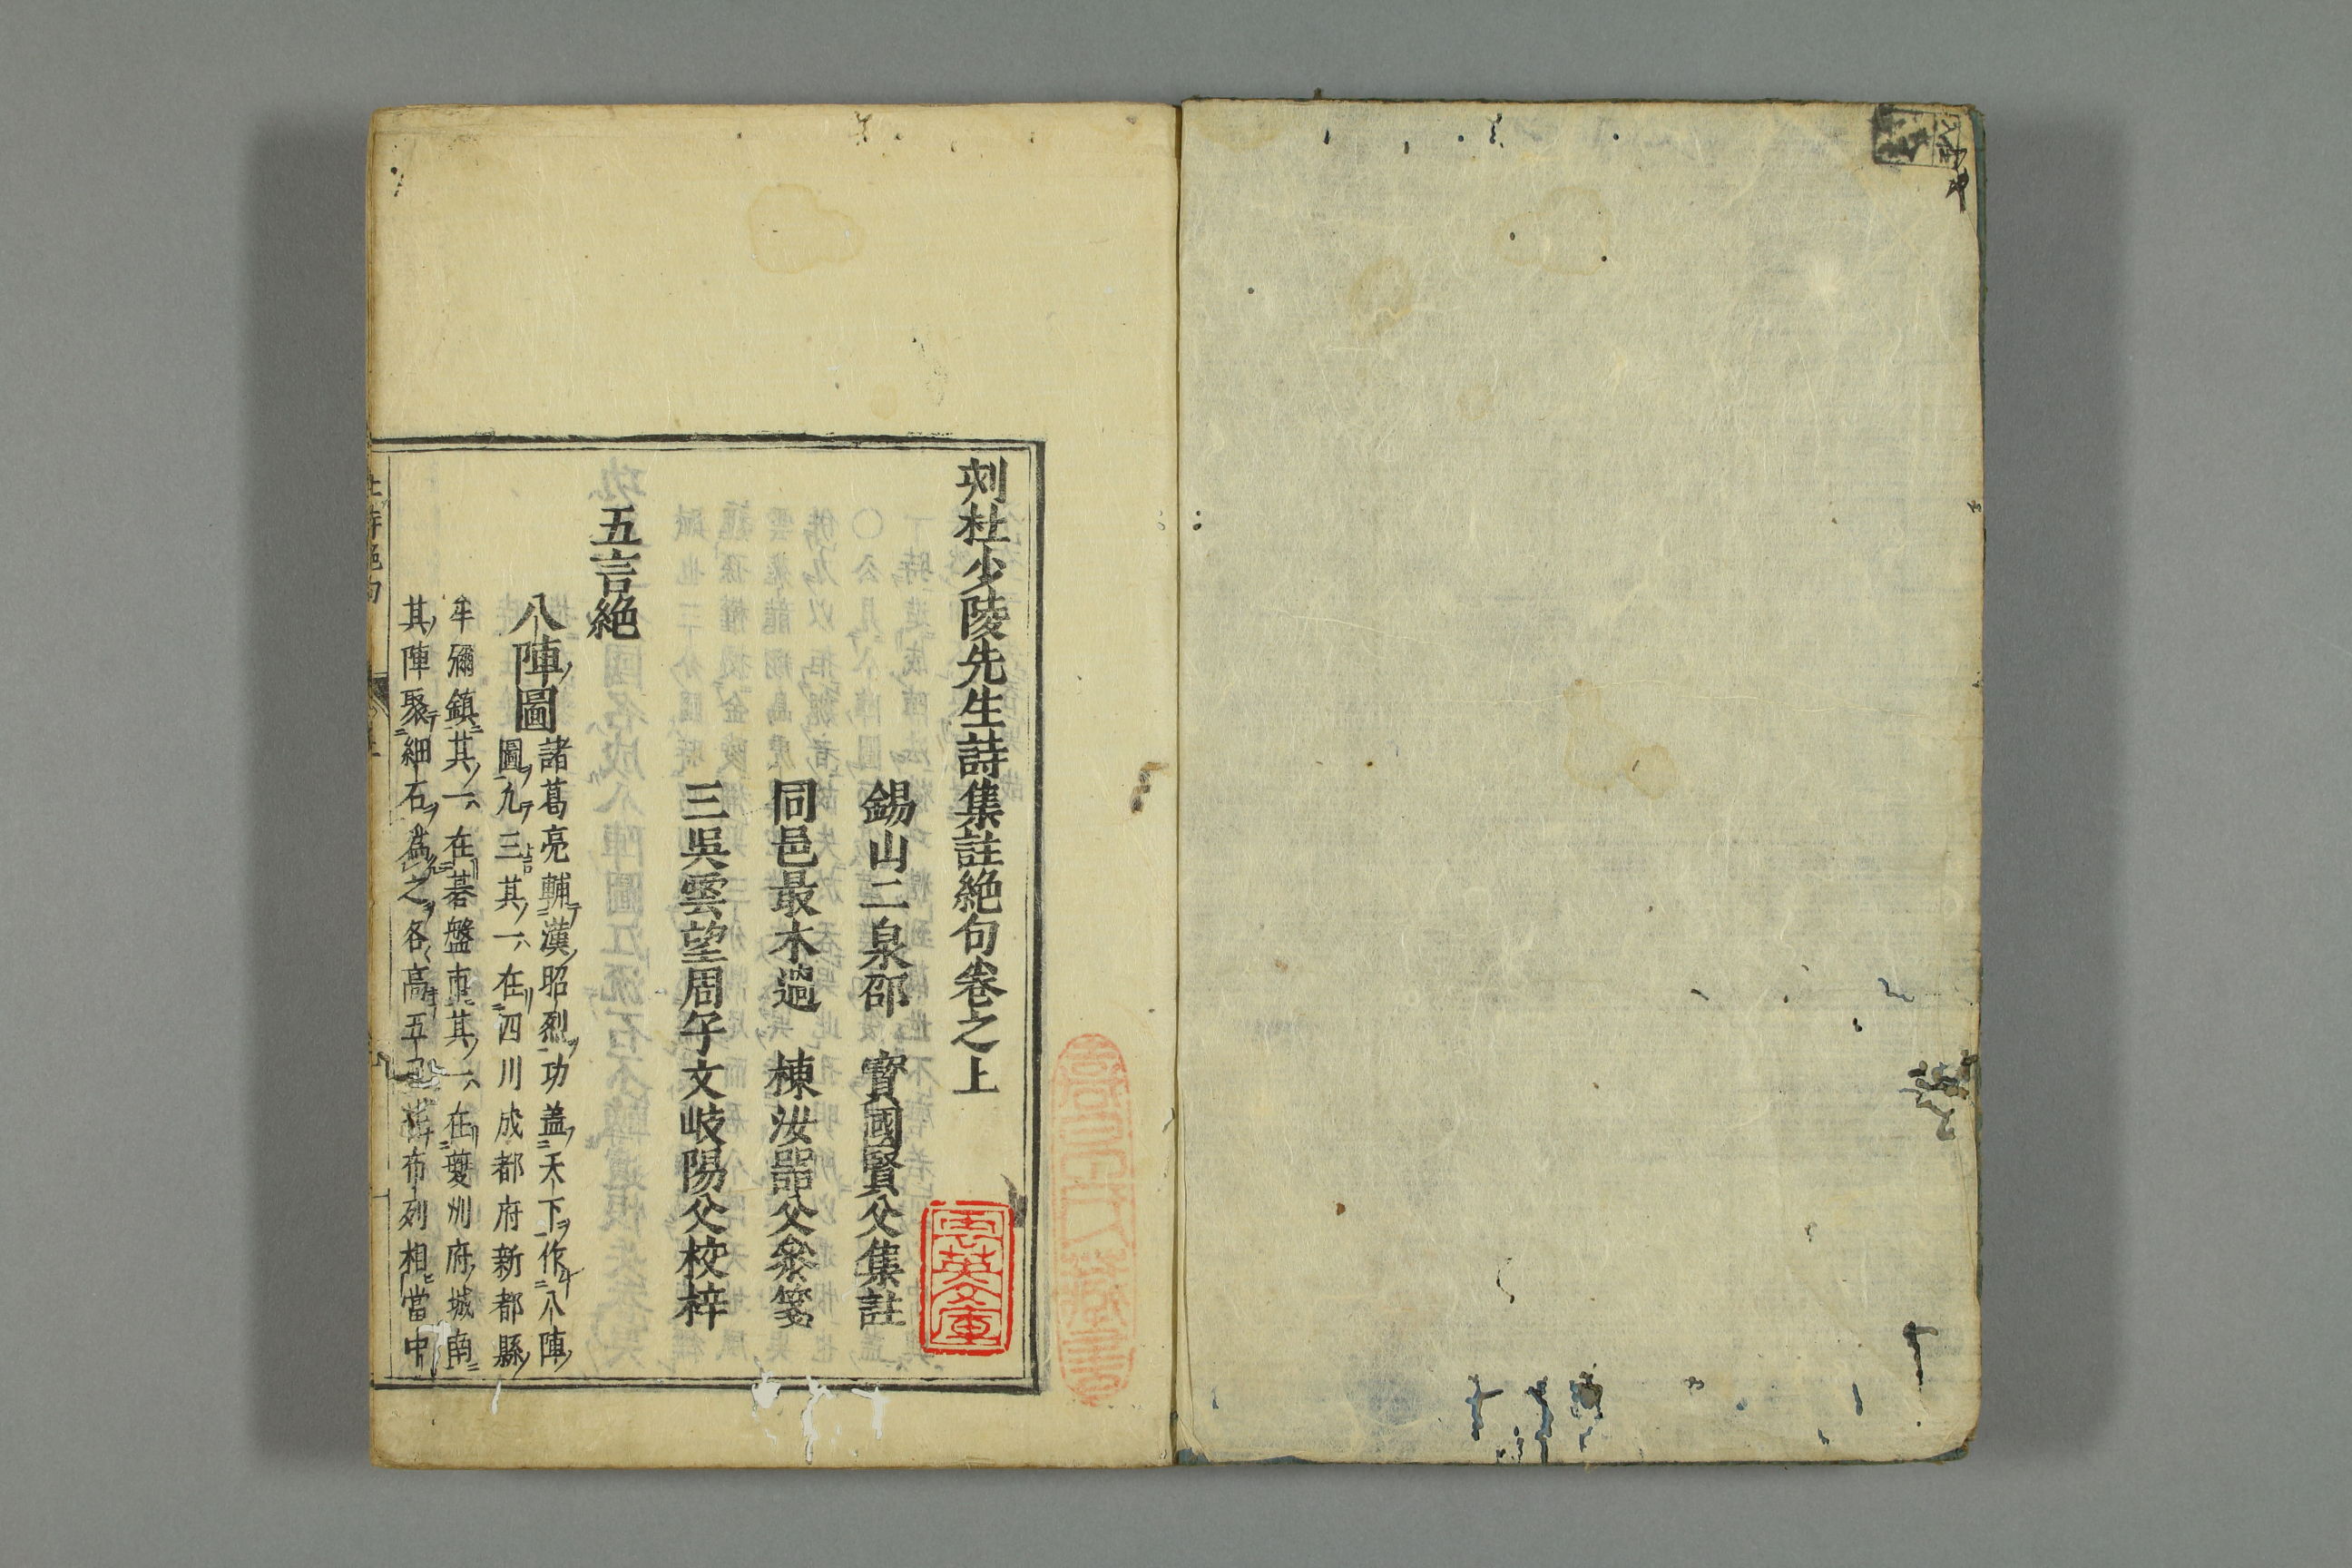 刻杜少陵先生詩集註絶句卷之上
錫山二泉邵 寳國賢父集註
同邑最木過 棟汝噐父叅箋
三吳雲望周子文岐陽父校梓
五言絶
八陣圖
諸葛亮輔漢昭烈功盖天下作八陣
圖九三其一在四川成都府新都縣
牟彌鎮其一在碁盤市其一在夔州府城南
其陣聚細石爲之各高五 布列相當中